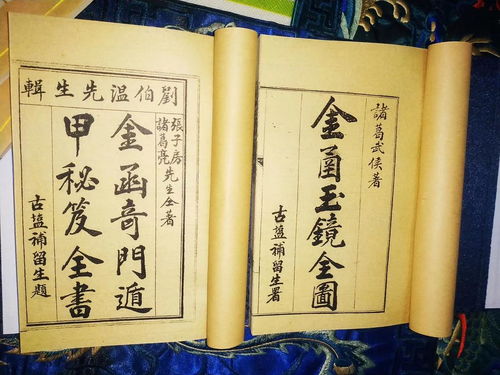 諸葛武侯著
金凾玉鏡全圖
古塩補留生署
劉伯温先生輯
張子房
諸葛亮
先生仝著
金函奇門遁
甲秘笈全書
古塩補留生題